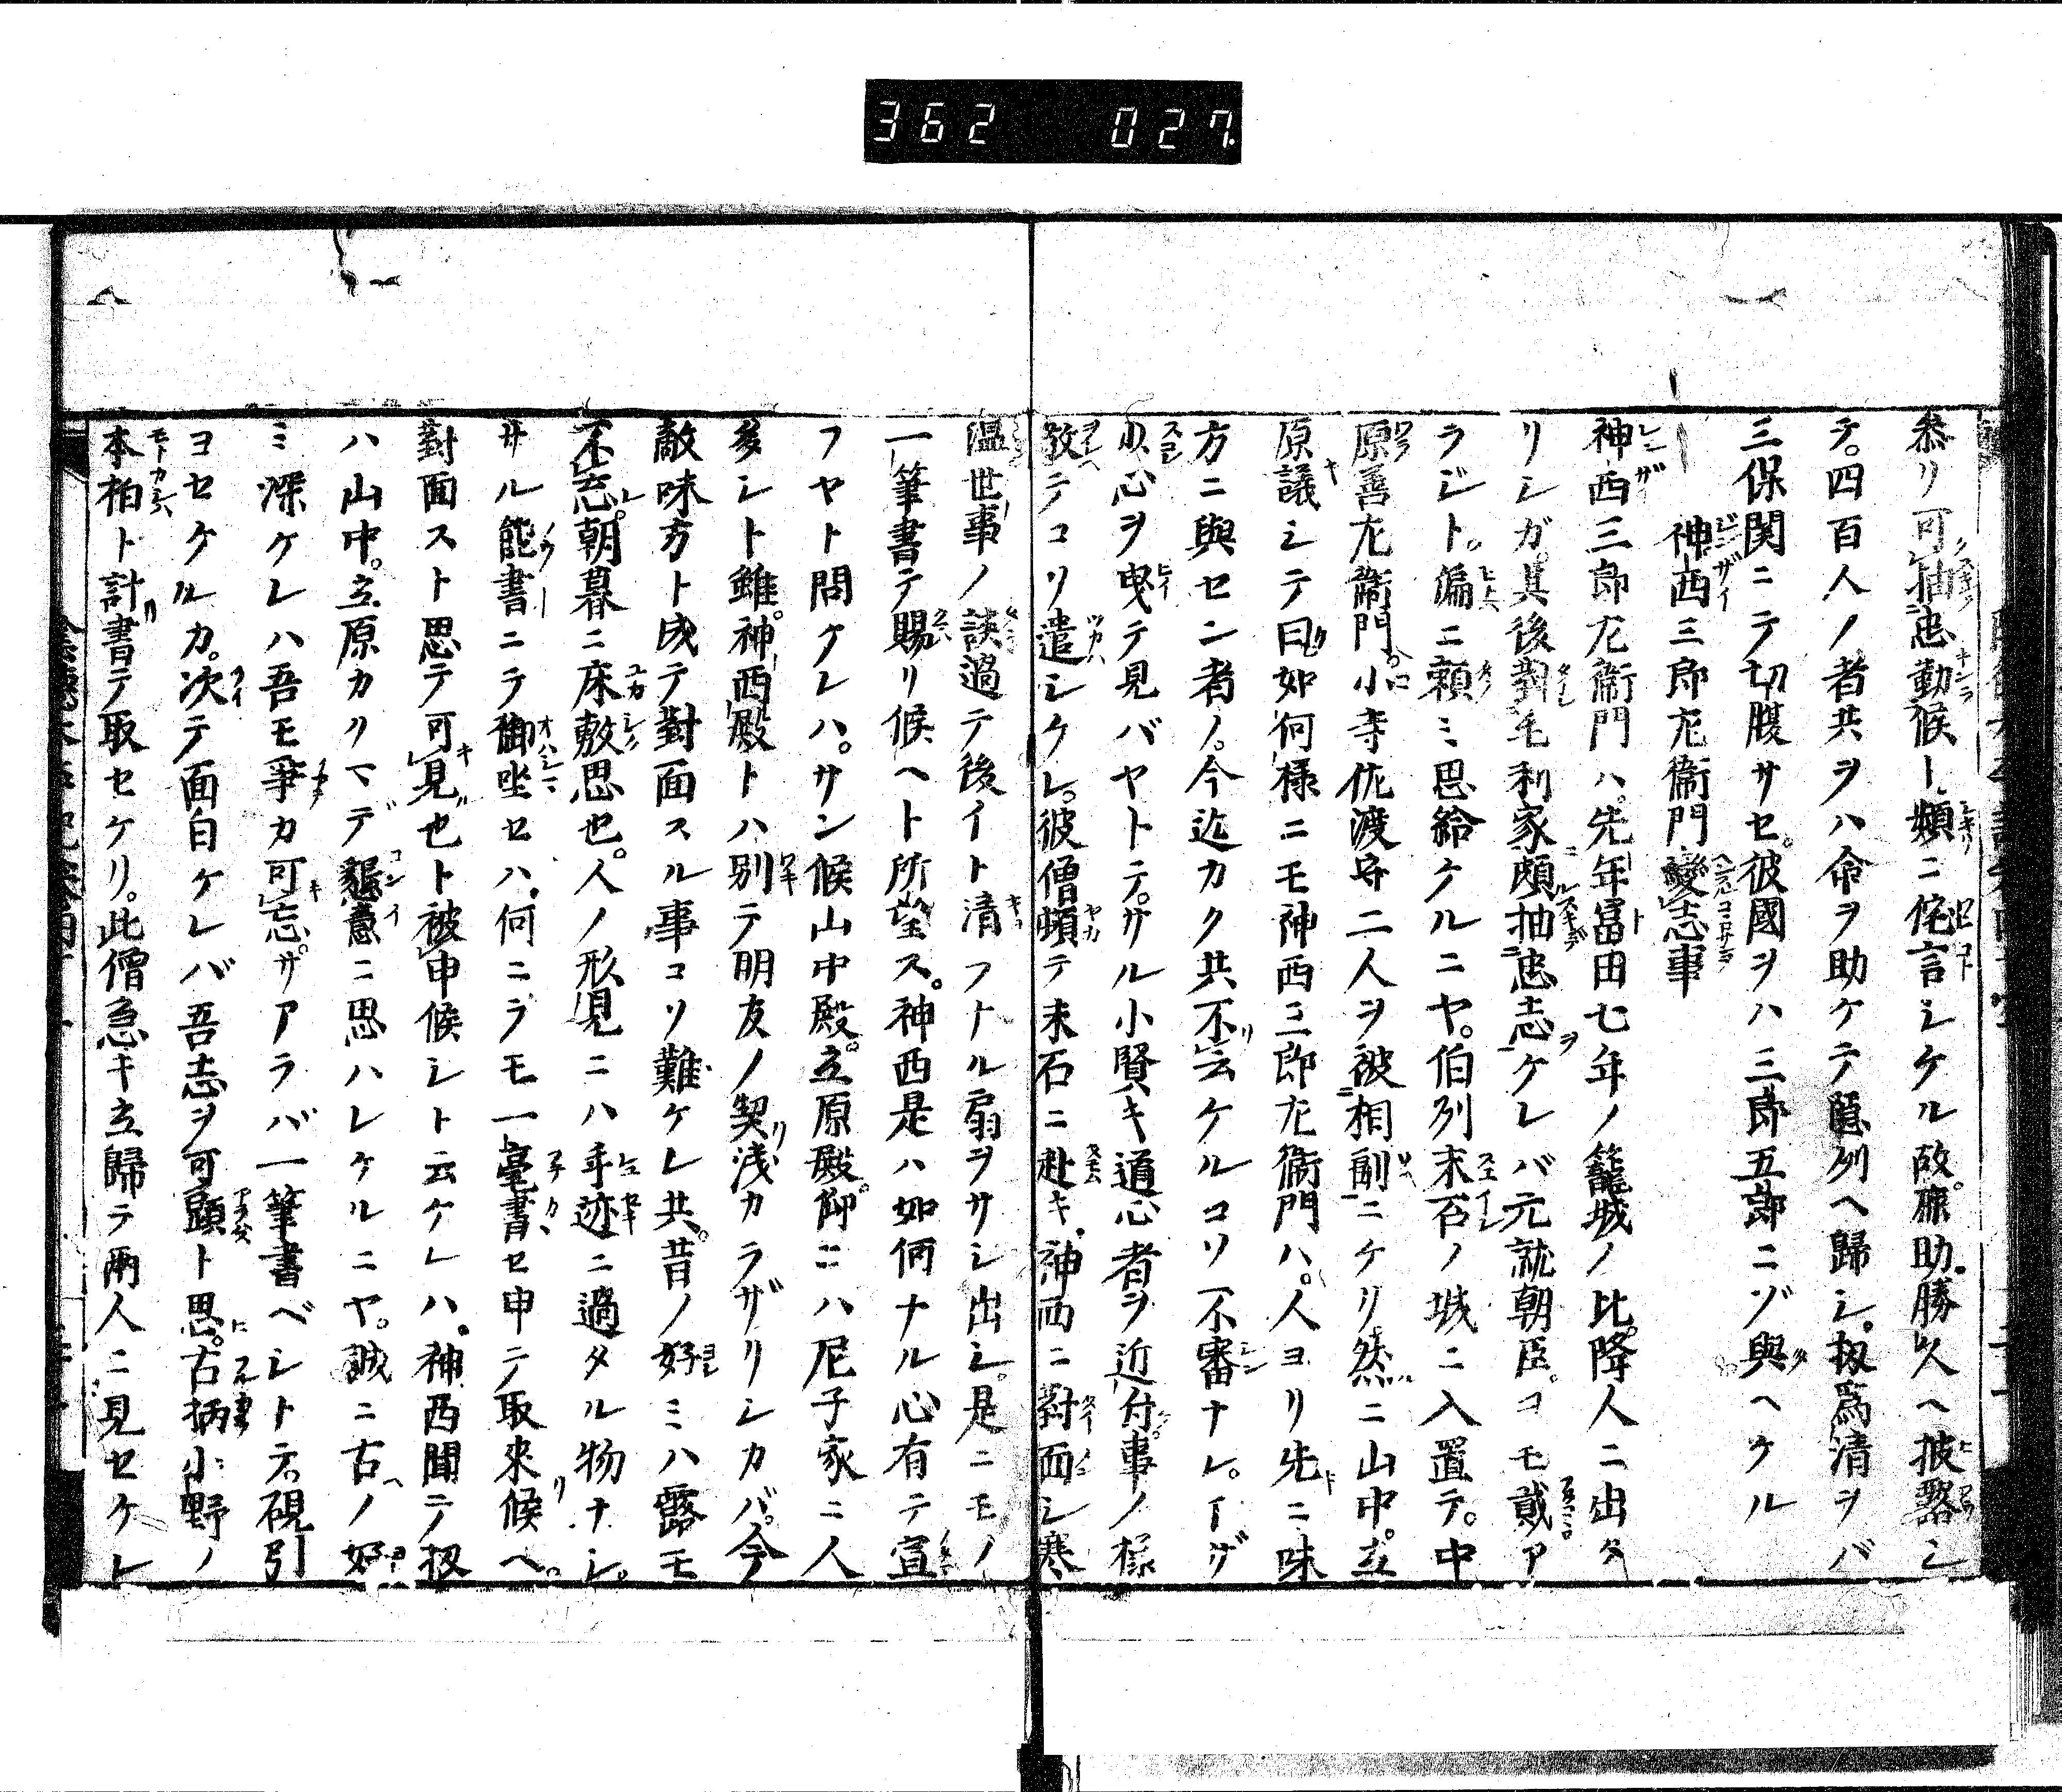 362 027.
叅リ可抽忠勤候ト頻ニ侘言シケル故原助勝久ヘ披露シ
テ四百人ノ者共ヲハ命ヲ助ケテ隠州ヘ歸シ扨爲清ヲバ
三保関ニテ切腹サセ彼國ヲハ三郎五郎ニゾ與ヘケル
神西三郎左衞門變志事
神西三郎左衞門ハ先年冨田七年ノ籠城ノ比降人ニ出タ
リシガ其後對毛利家頗抽忠志ケレバ元就朝臣コモ戴ア
ラジト偏ニ頼ミ思給ケルニヤ伯州末石ノ城ニ入置テ中
原善左衞門小寺佐渡守二人ヲ被相副ニケリ然ニ山中立
原議シテ曰如何樣ニモ神西三郎左衞門ハ人ヨリ先ニ味
方ニ與セン者ノ今迄カク共不云ケルコソ不審ナレイザ
小心ヲ曳テ見バヤトテサル小賢キ道心者ヲ近付事ノ様
教テコソ遣シケレ彼僧頓テ末石ニ赴キ神西ニ對面シ寒
温世事ノ談過テ後イト清フトル扇ヲサシ出シ是ニモノ
一筆書テ賜リ候ヘト所望ス神西是ハ如何ナル心有テ宣
フヤト問ケレハサン候山中殿立原殿仰ニハ尼子家ニ人
多シト雖神西殿トハ別テ明友ノ契浅カラザリシカバ今
敵味方ト成テ對面スル事コソ難ケレ共昔ノ好ミハ露モ
不忘朝暮ニ床敷思也人ノ形見ニハ手迹ニ過タル物ナシ
サル能書ニテ御坐セハ何ニテモ一毫書セ申テ取來候ヘ
對面スト思テ可見也ト被申候シト云ケレハ神西聞テ扨
ハ山中立原カクマデ懇意ニ思ハレケルニヤ誠ニ古ノ好
ミ深ケレハ吾モ爭カ可忘サアラバ一筆書ベシトテ硯引
ヨセケルカ次テ面白ケレバ吾志ヲ可顕ト思古柄小野ノ
本柏ト計書テ取セケリ此僧急キ立歸テ兩人ニ見セケレ